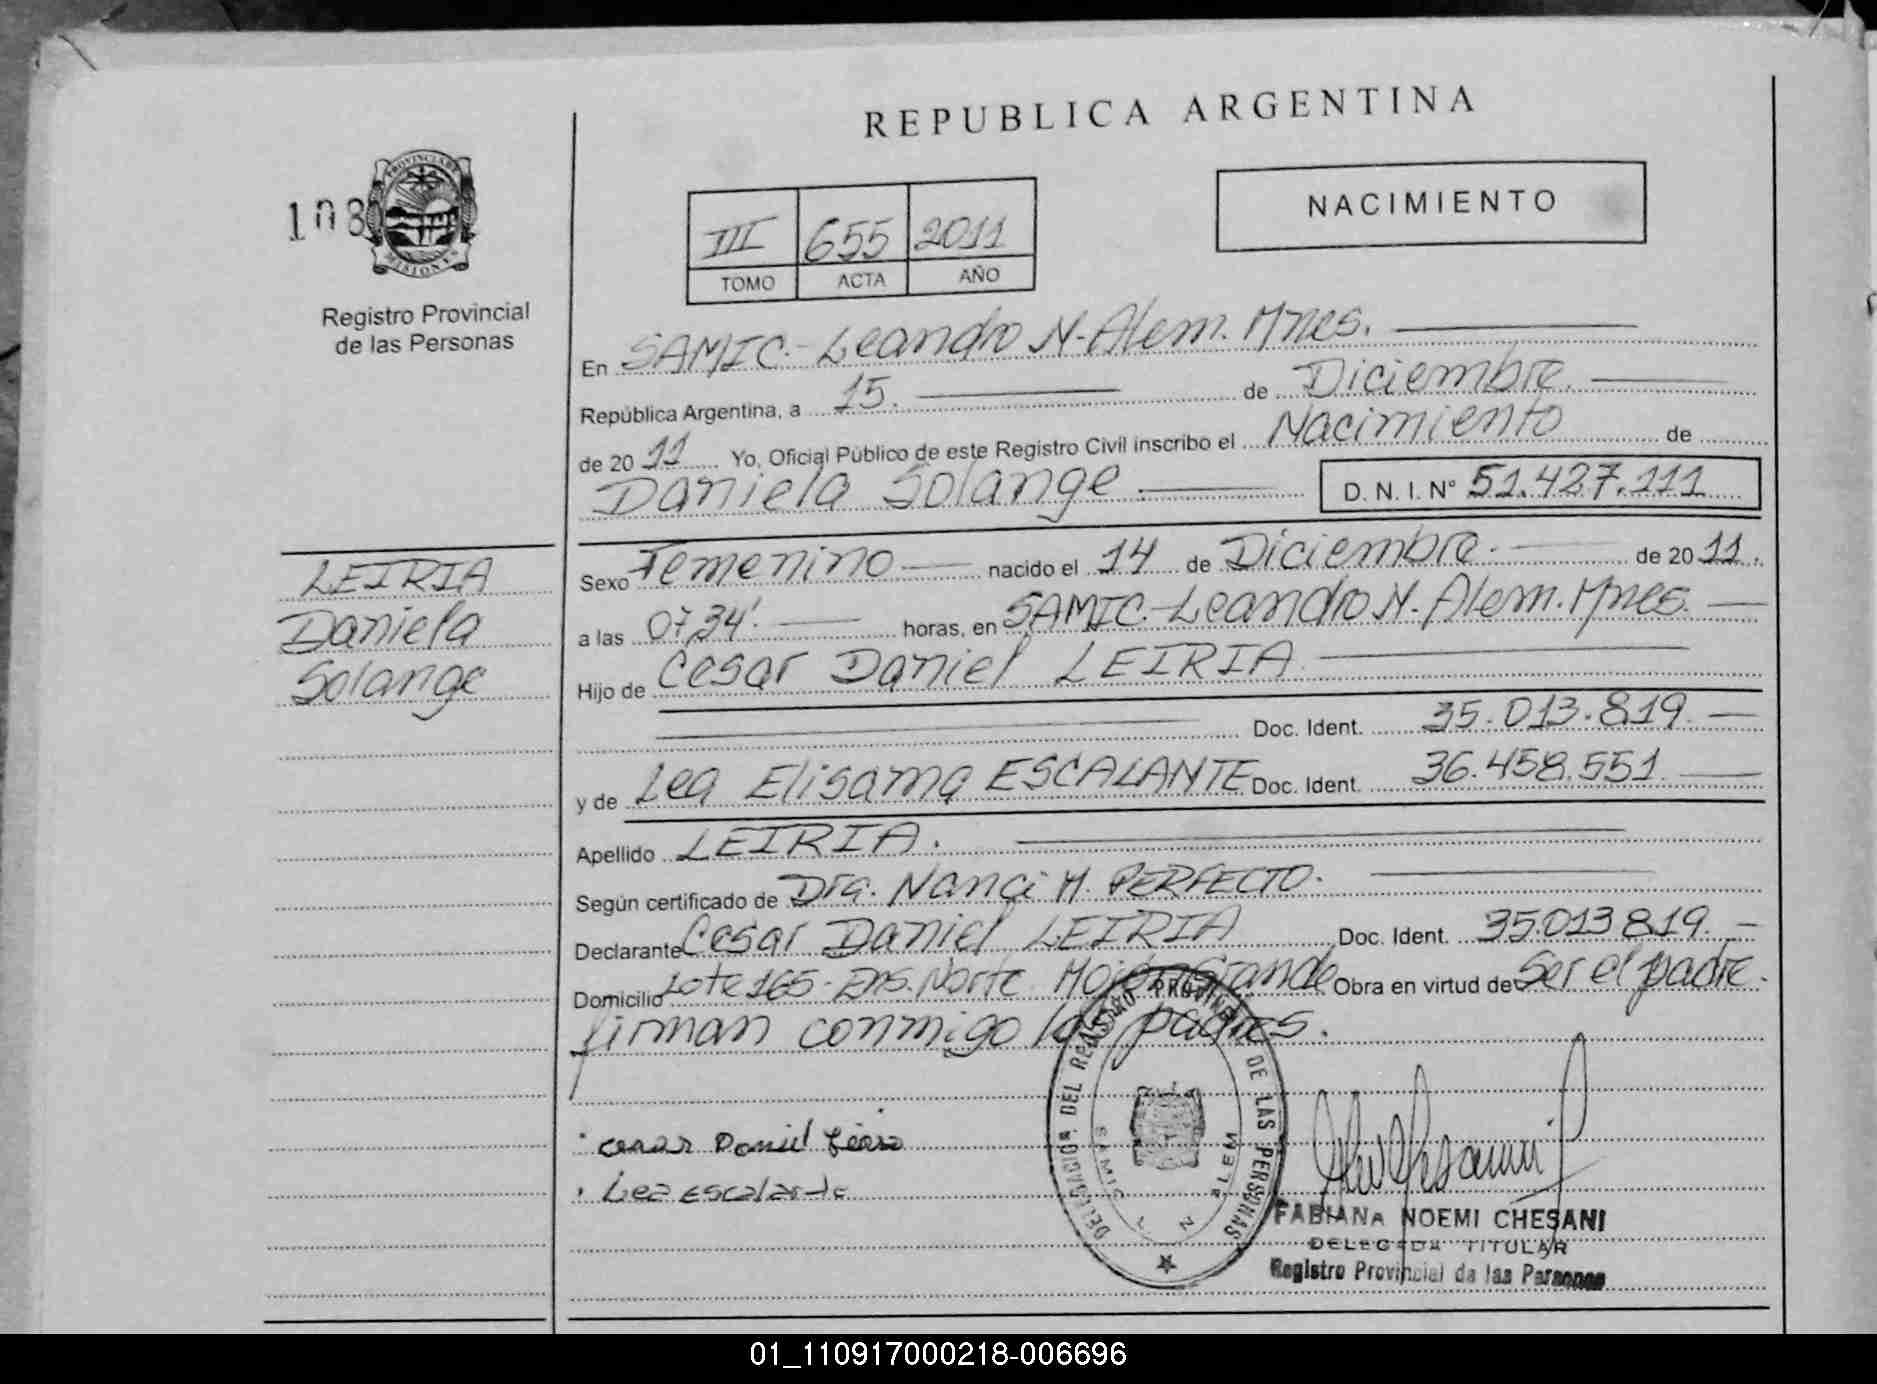 REPUBLICA ARGENTINA
108
PROVINCIA DE
MISIONES
Registro Provincial
de las Personas
III 655 2011
TOMO ACTA AÑO
NACIMIENTO
En SAMIC.- Leandro N. Alem. Mnes.
República Argentina, a 15. de Diciembre.
de 2011 Yo, Oficial Público de este Registro Civil inscribo el Nacimiento de
Daniela Solange. D. N. I. N° 51.427.111
LEIRIA
Daniela
Solange
Sexo Femenino nacido el 14 de Diciembre. de 2011.
a las 07,34'. horas, en SAMIC.- Leandro N. Alem. Mnes.
Hijo de Cesar Daniel LEIRIA.
Doc. Ident. 35.013.819.
y de Lea Elisama ESCALANTE Doc. Ident. 36.458.551.
Apellido LEIRIA.
Según certificado de Dra. Nanci M. PERFECTO.
Declarante Cesar Daniel LEIRIA Doc. Ident. 35.013.819.
Domicilio Lote 165- Norte Grande Obra en virtud de Ser el padre.
firman conmigo los padres.
DELEGACION DEL REGISTRO PROVINCIAL DE LAS PERSONAS
SAMIC L N ALEM
Cesar Daniel Leiria
Lea Escalante
FABIANA NOEMI CHESANI
DELEGADA TITULAR
Registro Provincial de las Personas
01_110917000218-006696